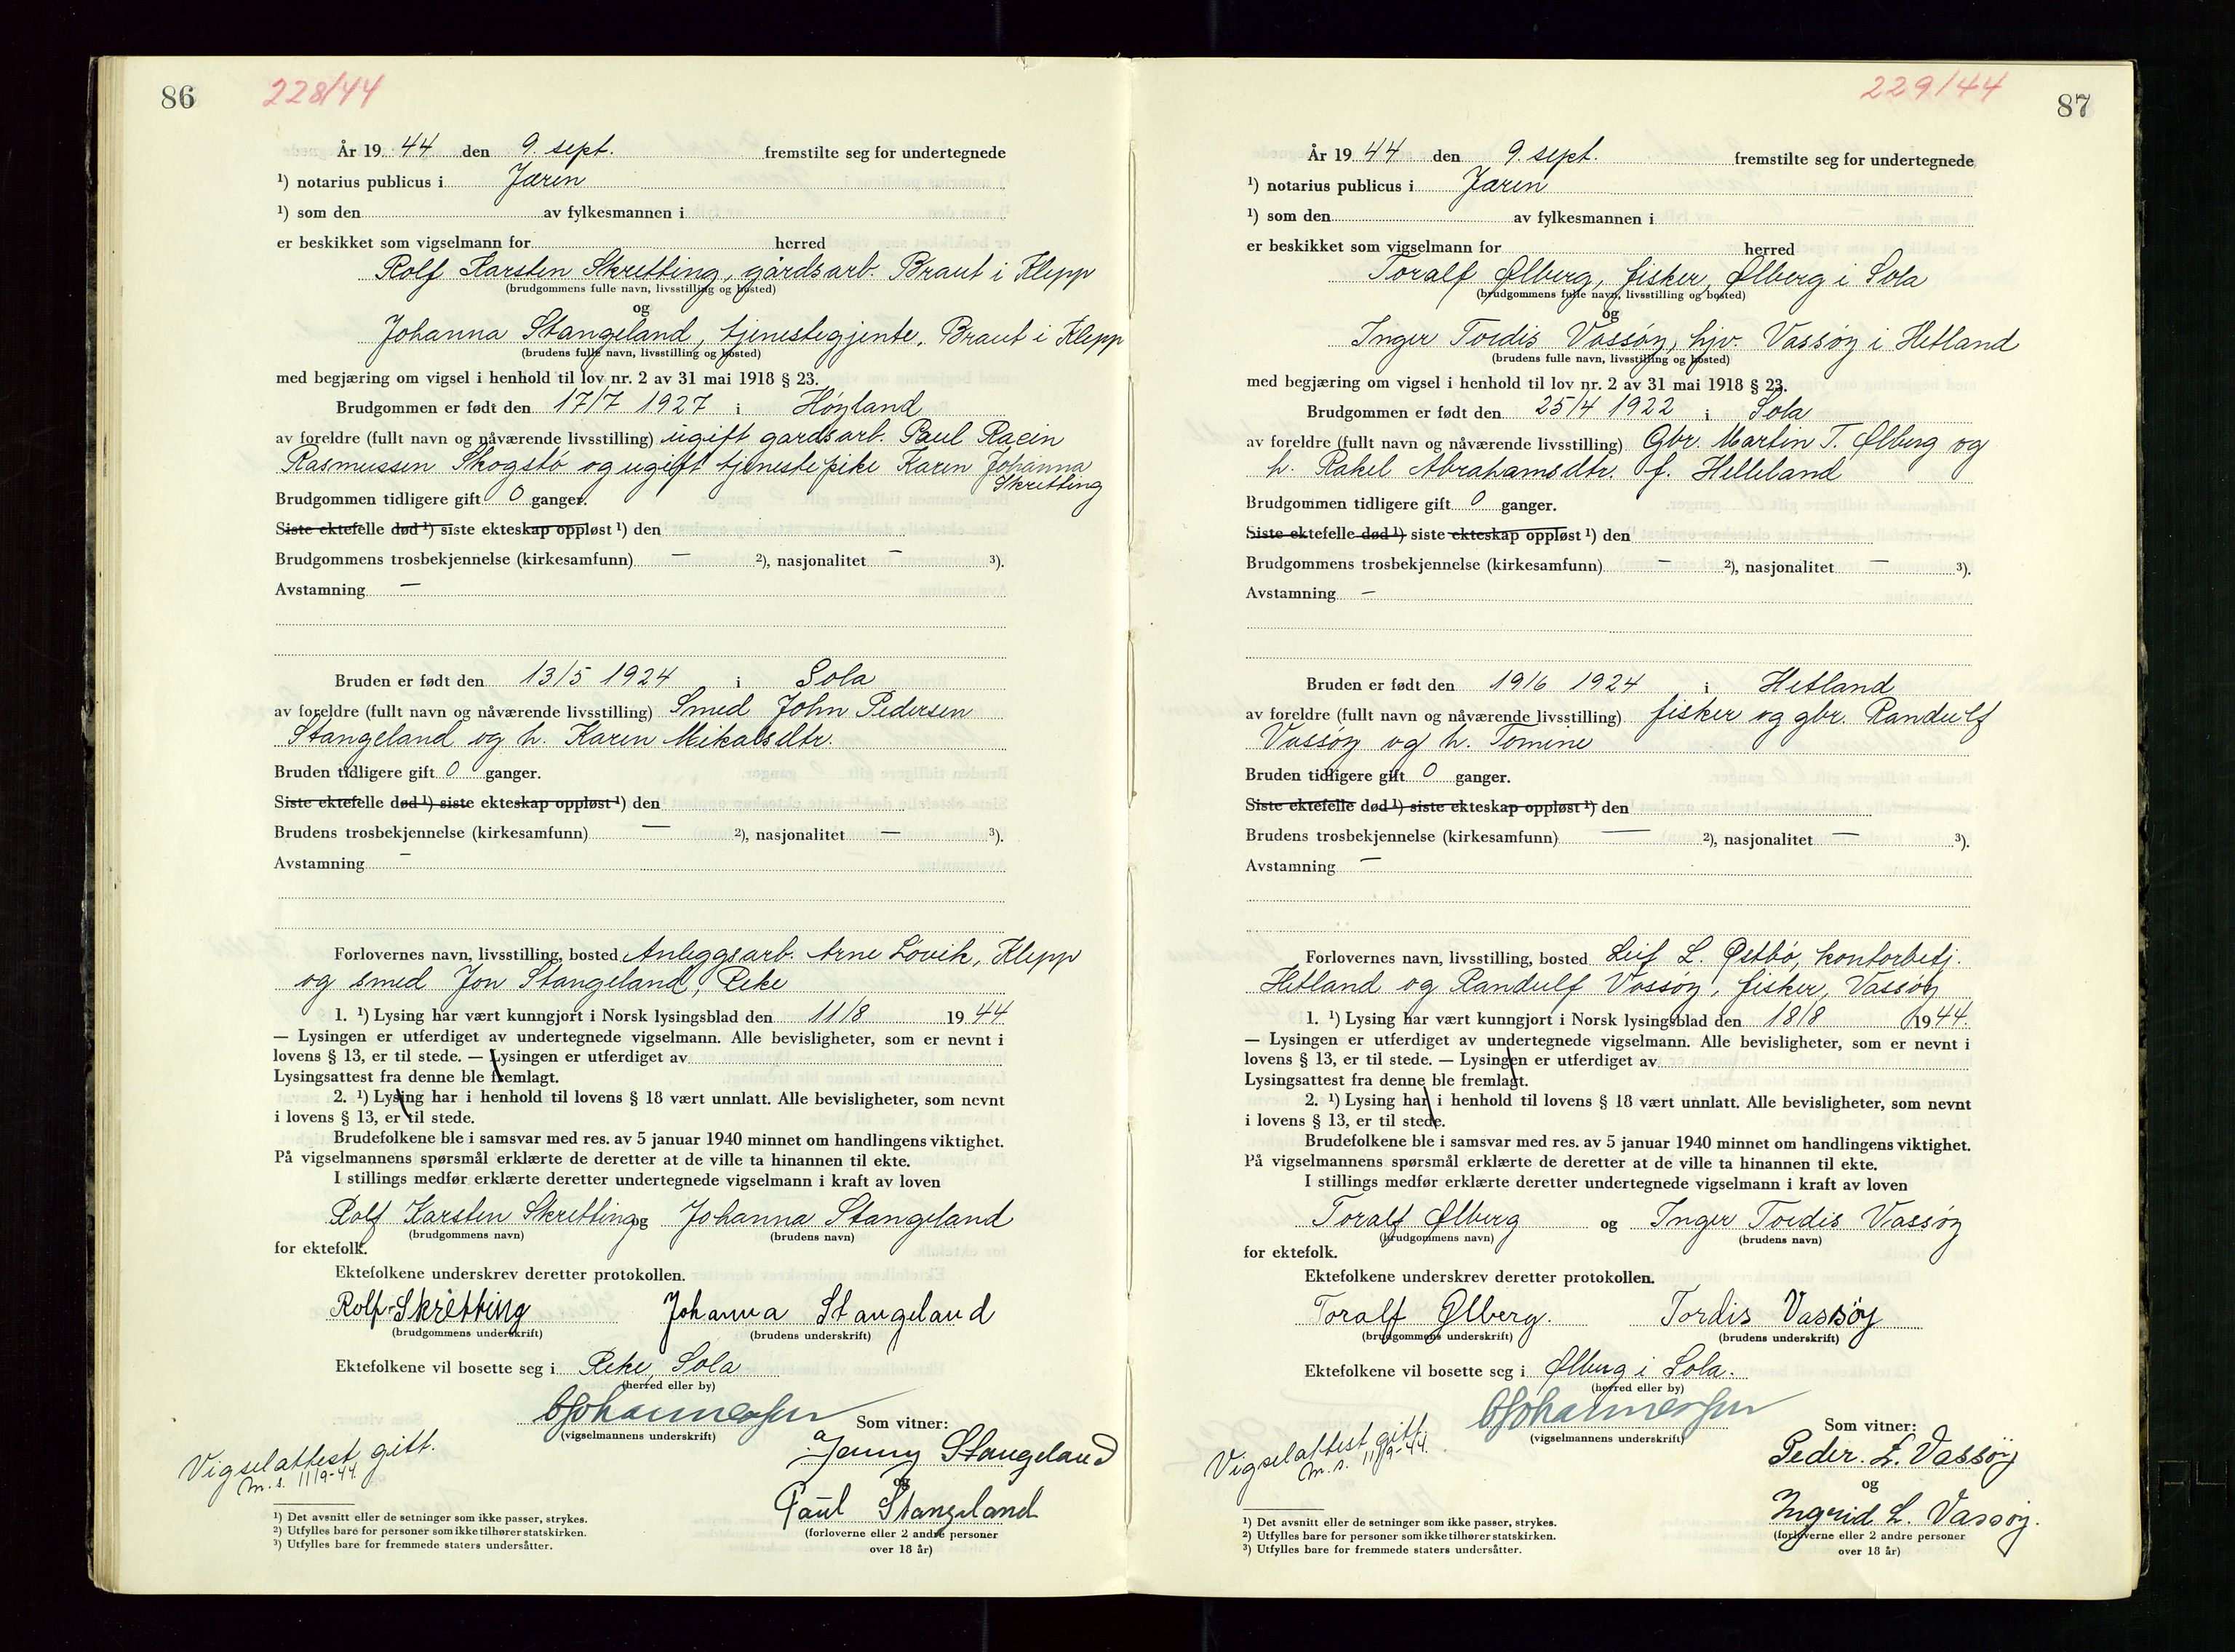 86
228/44
År 19 44 den 9. sept. fremstilte seg for undertegnede
¹) notarius publicus i Jæren
¹) som den av fylkesmannen i
er beskikket som vigselmann for herred
Rolf Karsten Skretting, gårdsarb. Braut i Klepp
(brudgommens fulle navn, livsstilling og bosted)
og
Johanna Stangeland, tjenestegjente, Braut i Klepp
(brudens fulle navn, livsstilling og bosted)
med begjæring om vigsel i henhold til lov nr. 2 av 31 mai 1918 § 23.
Brudgommen er født den 17/7 1927 i Høyland
av foreldre (fullt navn og nåværende livsstilling) ugift gardsarb. Paul Racin
Rasmussen Skogstø og ugift tjenestepike Karen Johanna
Skretting
Brudgommen tidligere gift 0 ganger.
Siste ektefelle død ¹) siste ekteskap oppløst ¹) den
Brudgommens trosbekjennelse (kirkesamfunn) — ²), nasjonalitet — ³).
Avstamning —
Bruden er født den 13/5 1924 i Sola
av foreldre (fullt navn og nåværende livsstilling) Smed John Pedersen
Stangeland og h. Karen Mikalsdtr.
Bruden tidligere gift 0 ganger.
Siste ektefelle død ¹) siste ekteskap oppløst ¹) den
Brudens trosbekjennelse (kirkesamfunn) — ²), nasjonalitet — ³).
Avstamning —
Forlovernes navn, livsstilling, bosted Anleggsarb. Arne Lovik, Klepp
og smed Jon Stangeland, Reke
1. ¹) Lysing har vært kunngjort i Norsk lysingsblad den 11/8 19 44
— Lysingen er utferdiget av undertegnede vigselmann. Alle bevisligheter, som er nevnt i
lovens § 13, er til stede. — Lysingen er utferdiget av
Lysingsattest fra denne ble fremlagt.
2. ¹) Lysing har i henhold til lovens § 18 vært unnlatt. Alle bevisligheter, som nevnt
i lovens § 13, er til stede.
Brudefolkene ble i samsvar med res. av 5 januar 1940 minnet om handlingens viktighet.
På vigselmannens spørsmål erklærte de deretter at de ville ta hinannen til ekte.
I stillings medfør erklærte deretter undertegnede vigselmann i kraft av loven
Rolf Karsten Skretting og Johanna Stangeland
(brudgommens navn) (brudens navn)
for ektefolk.
Ektefolkene underskrev deretter protokollen.
Rolf Skretting Johanna Stangeland
(brudgommens underskrift) (brudens underskrift)
Ektefolkene vil bosette seg i Reke, Sola
(herred eller by)
(vigselmannens underskrift) Som vitner:
Jenny Stangeland
og
Paul Stangeland
(forloverne eller 2 andre personer
over 18 år)
Vigselattest gitt.
m.s. 11/9-44.
¹) Det avsnitt eller de setninger som ikke passer, strykes.
²) Utfylles bare for personer som ikke tilhører statskirken.
³) Utfylles bare for fremmede staters undersåtter.
229/44
87
År 19 44 den 9. sept. fremstilte seg for undertegnede
¹) notarius publicus i Jæren
¹) som den av fylkesmannen i
er beskikket som vigselmann for herred
Toralf Ølberg, fisker, Ølberg i Sola
(brudgommens fulle navn, livsstilling og bosted)
og
Inger Tordis Vassøy, hjv. Vassøy i Hetland
(brudens fulle navn, livsstilling og bosted)
med begjæring om vigsel i henhold til lov nr. 2 av 31 mai 1918 § 23.
Brudgommen er født den 25/4 1922 i Sola
av foreldre (fullt navn og nåværende livsstilling) Gbr. Martin T. Ølberg og
h. Rakel Abrahamsdtr. f. Helleland
Brudgommen tidligere gift 0 ganger.
Siste ektefelle død ¹) siste ekteskap oppløst ¹) den
Brudgommens trosbekjennelse (kirkesamfunn) — ²), nasjonalitet — ³).
Avstamning —
Bruden er født den 19/6 1924 i Hetland
av foreldre (fullt navn og nåværende livsstilling) fisker og gbr. Randulf
Vassøy og h. Tomine
Bruden tidligere gift 0 ganger.
Siste ektefelle død ¹) siste ekteskap oppløst ¹) den
Brudens trosbekjennelse (kirkesamfunn) — ²), nasjonalitet — ³).
Avstamning —
Forlovernes navn, livsstilling, bosted Leif L. Østbø, kontorbetj.
Hetland og Randulf Vassøy, fisker, Vassøy
1. ¹) Lysing har vært kunngjort i Norsk lysingsblad den 18/8 19 44.
— Lysingen er utferdiget av undertegnede vigselmann. Alle bevisligheter, som er nevnt i
lovens § 13, er til stede. — Lysingen er utferdiget av
Lysingsattest fra denne ble fremlagt.
2. ¹) Lysing har i henhold til lovens § 18 vært unnlatt. Alle bevisligheter, som nevnt
i lovens § 13, er til stede.
Brudefolkene ble i samsvar med res. av 5 januar 1940 minnet om handlingens viktighet.
På vigselmannens spørsmål erklærte de deretter at de ville ta hinannen til ekte.
I stillings medfør erklærte deretter undertegnede vigselmann i kraft av loven
Toralf Ølberg og Inger Tordis Vassøy
(brudgommens navn) (brudens navn)
for ektefolk.
Ektefolkene underskrev deretter protokollen.
Toralf Ølberg. Tordis Vassøy
(brudgommens underskrift) (brudens underskrift)
Ektefolkene vil bosette seg i Ølberg i Sola.
(herred eller by)
(vigselmannens underskrift) Som vitner:
Peder. L. Vassøy
og
Ingrid L. Vassøy.
(forloverne eller 2 andre personer
over 18 år)
Vigselattest gitt.
m.s. 11/9-44.
¹) Det avsnitt eller de setninger som ikke passer, strykes.
²) Utfylles bare for personer som ikke tilhører statskirken.
³) Utfylles bare for fremmede staters undersåtter.